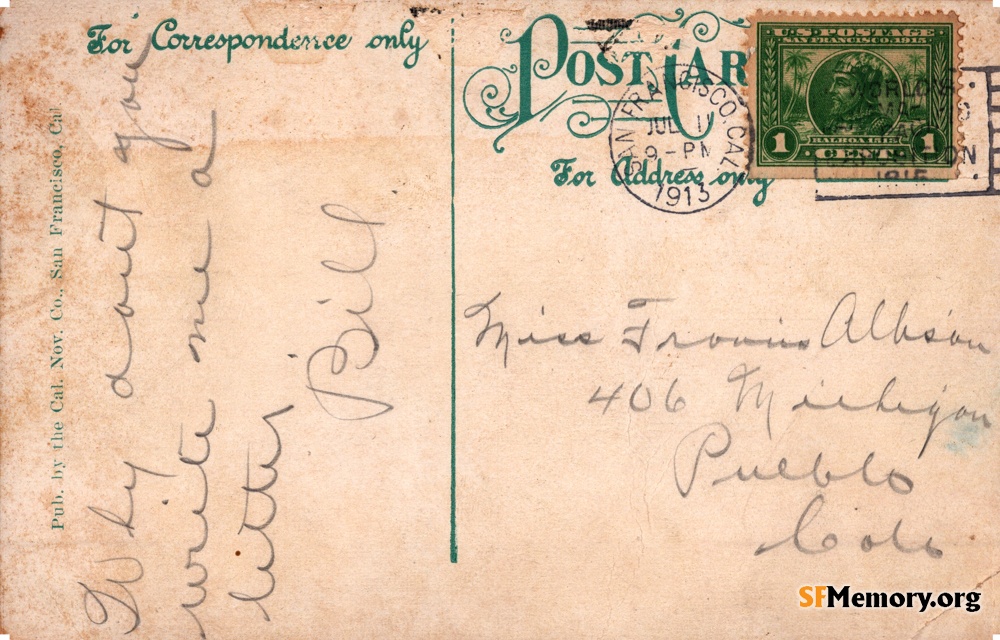 For Correspondence only
POST CAR
For Address only
U.S. POSTAGE
SAN FRANCISCO, 1915
BALBOA, 1513
1 CENT 1
SAN FRANCISCO, CAL.
JUL 11
9-PM
1913
WORLD'S
1915
Pub. by the Cal. Nov. Co., San Francisco, Cal
Why dont you
write me a
letter
Bill
Miss Albson
406 Michigan
Pueblo
Colo
SFMemory.org